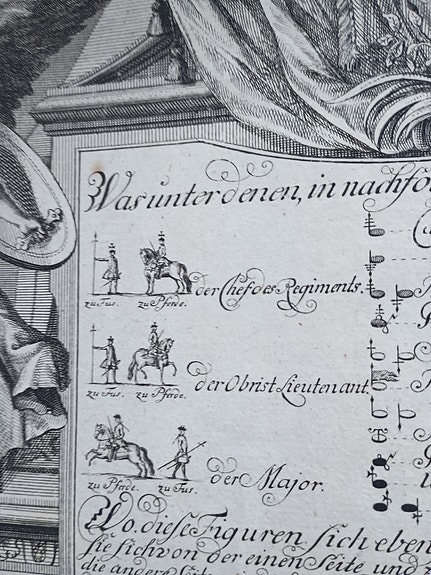 Was unter denen, in nachfol
der Chef des Regiments.
zu Fus. zu Pferde.
der Obrist Lieutenant.
zu Fus. zu Pferde.
der Major.
zu Pferde. zu Fus.
Wo diese Figuren sich eben
sie sich von der einen Seite und
die andere